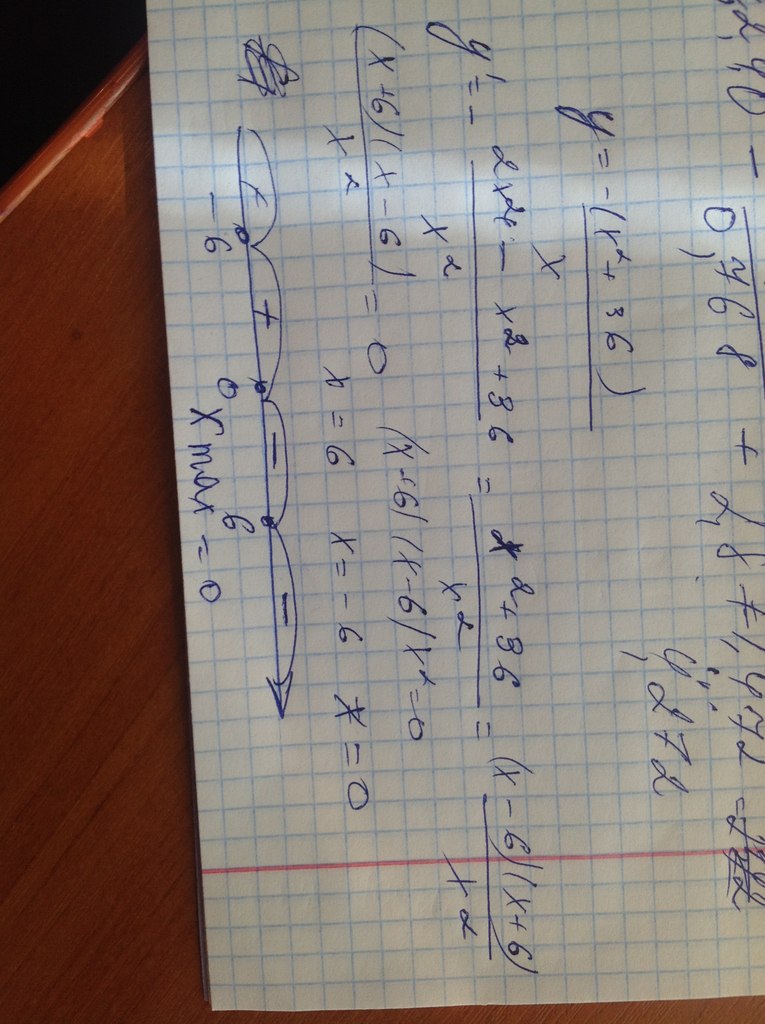 0,768 + 28
4,272
y = -(x² + 36)
x
y' = - 2x·x - x² + 36 / x² = x² + 36 / x² = (x - 6)(x + 6) / x²
(x+6)(x-6) x² = 0
(x+6)(x-6) / x² = 0
x = 6 x = -6 x = 0
+ + - -
-6 0 6
Xmax = 0